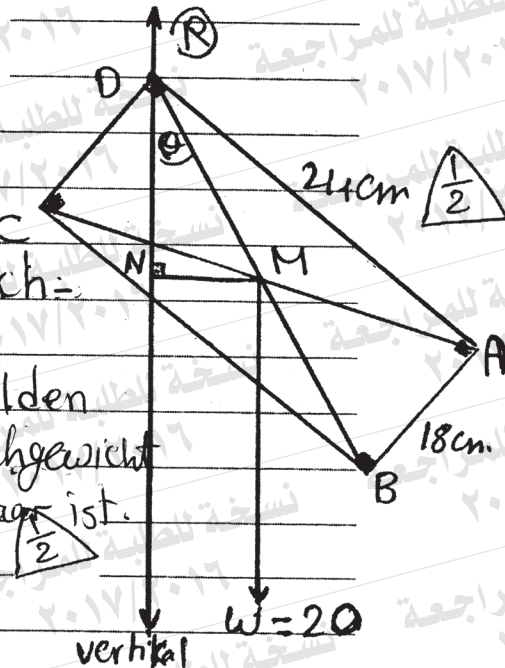 R
D
θ
24cm
1/2
C
N
M
ch-
A
lden
18cm.
hgewicht
B
ist.
1/2
W=20
vertikal
نسخة للطلبة للمراجعة
٢٠١٧/٢٠١٦